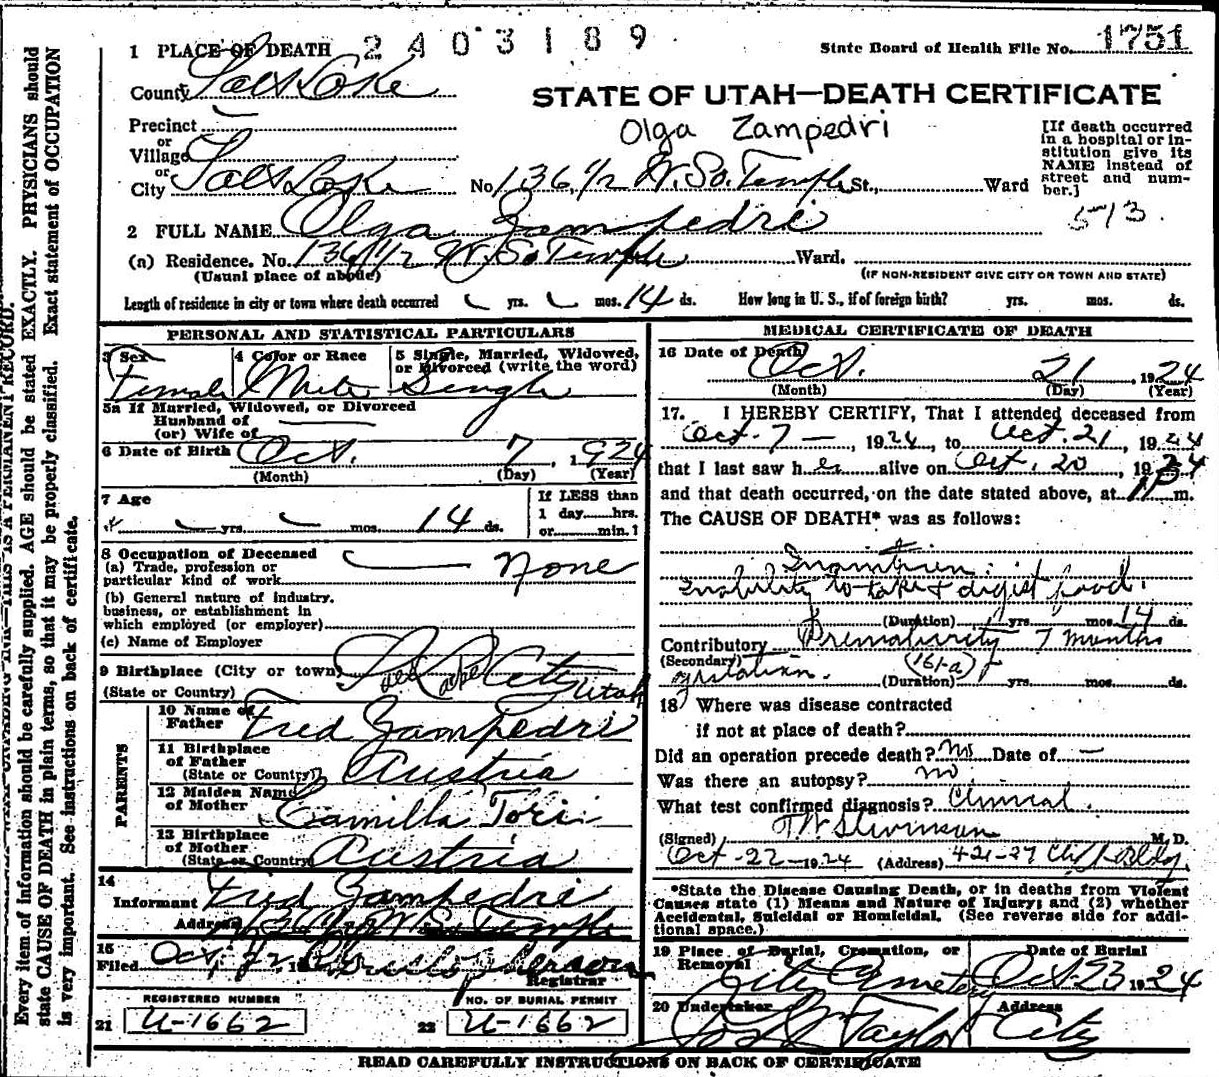 1 PLACE OF DEATH 2403189 State Board of Health File No. 1751
County Salt Lake
STATE OF UTAH—DEATH CERTIFICATE
Olga Zampedri
Precinct
or
Village
or
City Salt Lake No. 136 1/2 W. So. Temple St., Ward
[If death occurred in a hospital or institution give its NAME instead of street and number.]
513.
2 FULL NAME Olga Zampedri
(a) Residence. No. 136 1/2 W. So Temple Ward.
(Usual place of abode) (IF NON-RESIDENT GIVE CITY OR TOWN AND STATE)
Length of residence in city or town where death occurred yrs. mos. 14 ds. How long in U. S., if of foreign birth? yrs. mos. ds.
PERSONAL AND STATISTICAL PARTICULARS
3 Sex 4 Color or Race 5 Single, Married, Widowed, or Divorced (write the word)
Female White Single
5a If Married, Widowed, or Divorced
Husband of
(or) Wife of
6 Date of Birth Oct. 7, 1924
(Month) (Day) (Year)
7 Age If LESS than
yrs. mos. 14 ds. 1 day hrs.
or min.?
8 Occupation of Deceased
(a) Trade, profession or
particular kind of work None
(b) General nature of industry,
business, or establishment in
which employed (or employer)
(c) Name of Employer
9 Birthplace (City or town) Salt Lake City
(State or Country) Utah
PARENTS
10 Name of Father Fred Zampedri
11 Birthplace of Father (State or Country) Austria
12 Maiden Name of Mother Camilla Tori
13 Birthplace of Mother (State or Country) Austria
14
Informant Fred Zampedri
Address 136 1/2 W So Temple
15
Filed Oct,
Registrar
REGISTERED NUMBER NO. OF BURIAL PERMIT
21 U-1662 22 U-1662
MEDICAL CERTIFICATE OF DEATH
16 Date of Death
Oct. 21, 1924
(Month) (Day) (Year)
17. I HEREBY CERTIFY, That I attended deceased from
Oct. 7 —, 1924, to Oct. 21, 1924
that I last saw her alive on Oct. 20, 1924
and that death occurred, on the date stated above, at m.
The CAUSE OF DEATH* was as follows:
Inanition:
Inability to take & digist food.
(Duration) yrs. mos. 14 ds.
Contributory Prematurity 7 months
(Secondary) (161-a)
gestation. (Duration) yrs. mos. ds.
18 Where was disease contracted
if not at place of death?
Did an operation precede death? no Date of —
Was there an autopsy? no
What test confirmed diagnosis? Clinical.
(Signed) T W Stevenson M. D.
Oct-22-1924 (Address) 421-27
*State the Disease Causing Death, or in deaths from Violent
Causes state (1) Means and Nature of Injury; and (2) whether
Accidental, Suicidal or Homicidal. (See reverse side for addi-
tional space.)
19 Place of Burial, Cremation, or Removal Date of Burial
City Cemetery Oct. 23 1924
20 Undertaker Address
Taylor City
READ CAREFULLY INSTRUCTIONS ON BACK OF CERTIFICATE
Every item of information should be carefully supplied. AGE should be stated EXACTLY. PHYSICIANS should
state CAUSE OF DEATH in plain terms, so that it may be properly classified. Exact statement of OCCUPATION
is very important. See instructions on back of certificate.